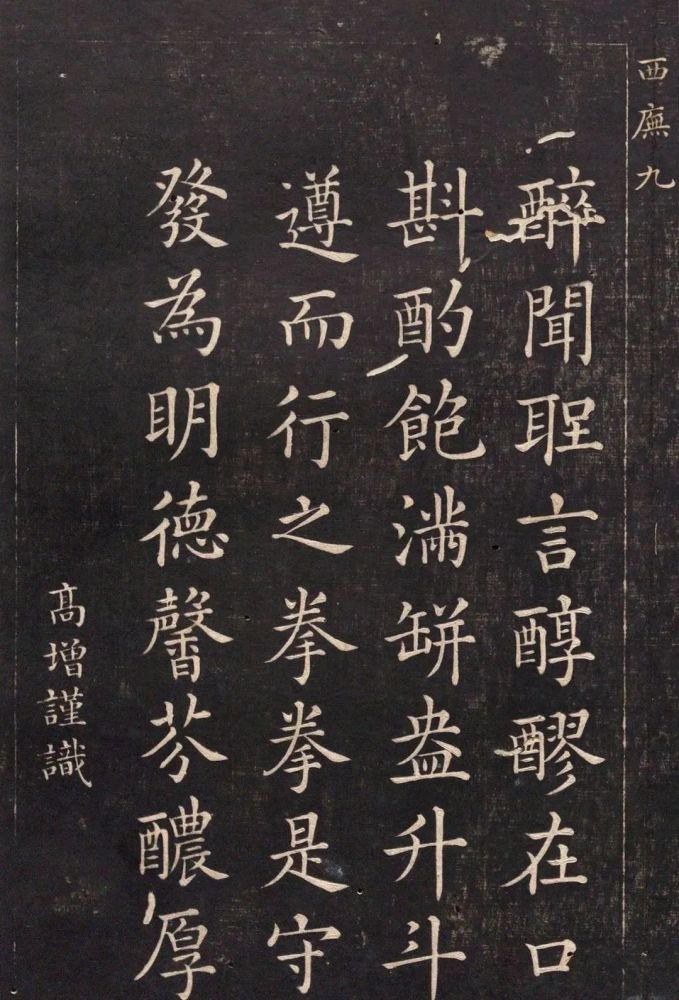 西廡九
醉聞聖言醇醪在口
斟酌飽滿缾盎升斗
遵而行之拳拳是守
發為明德馨芬醲厚
高增謹識